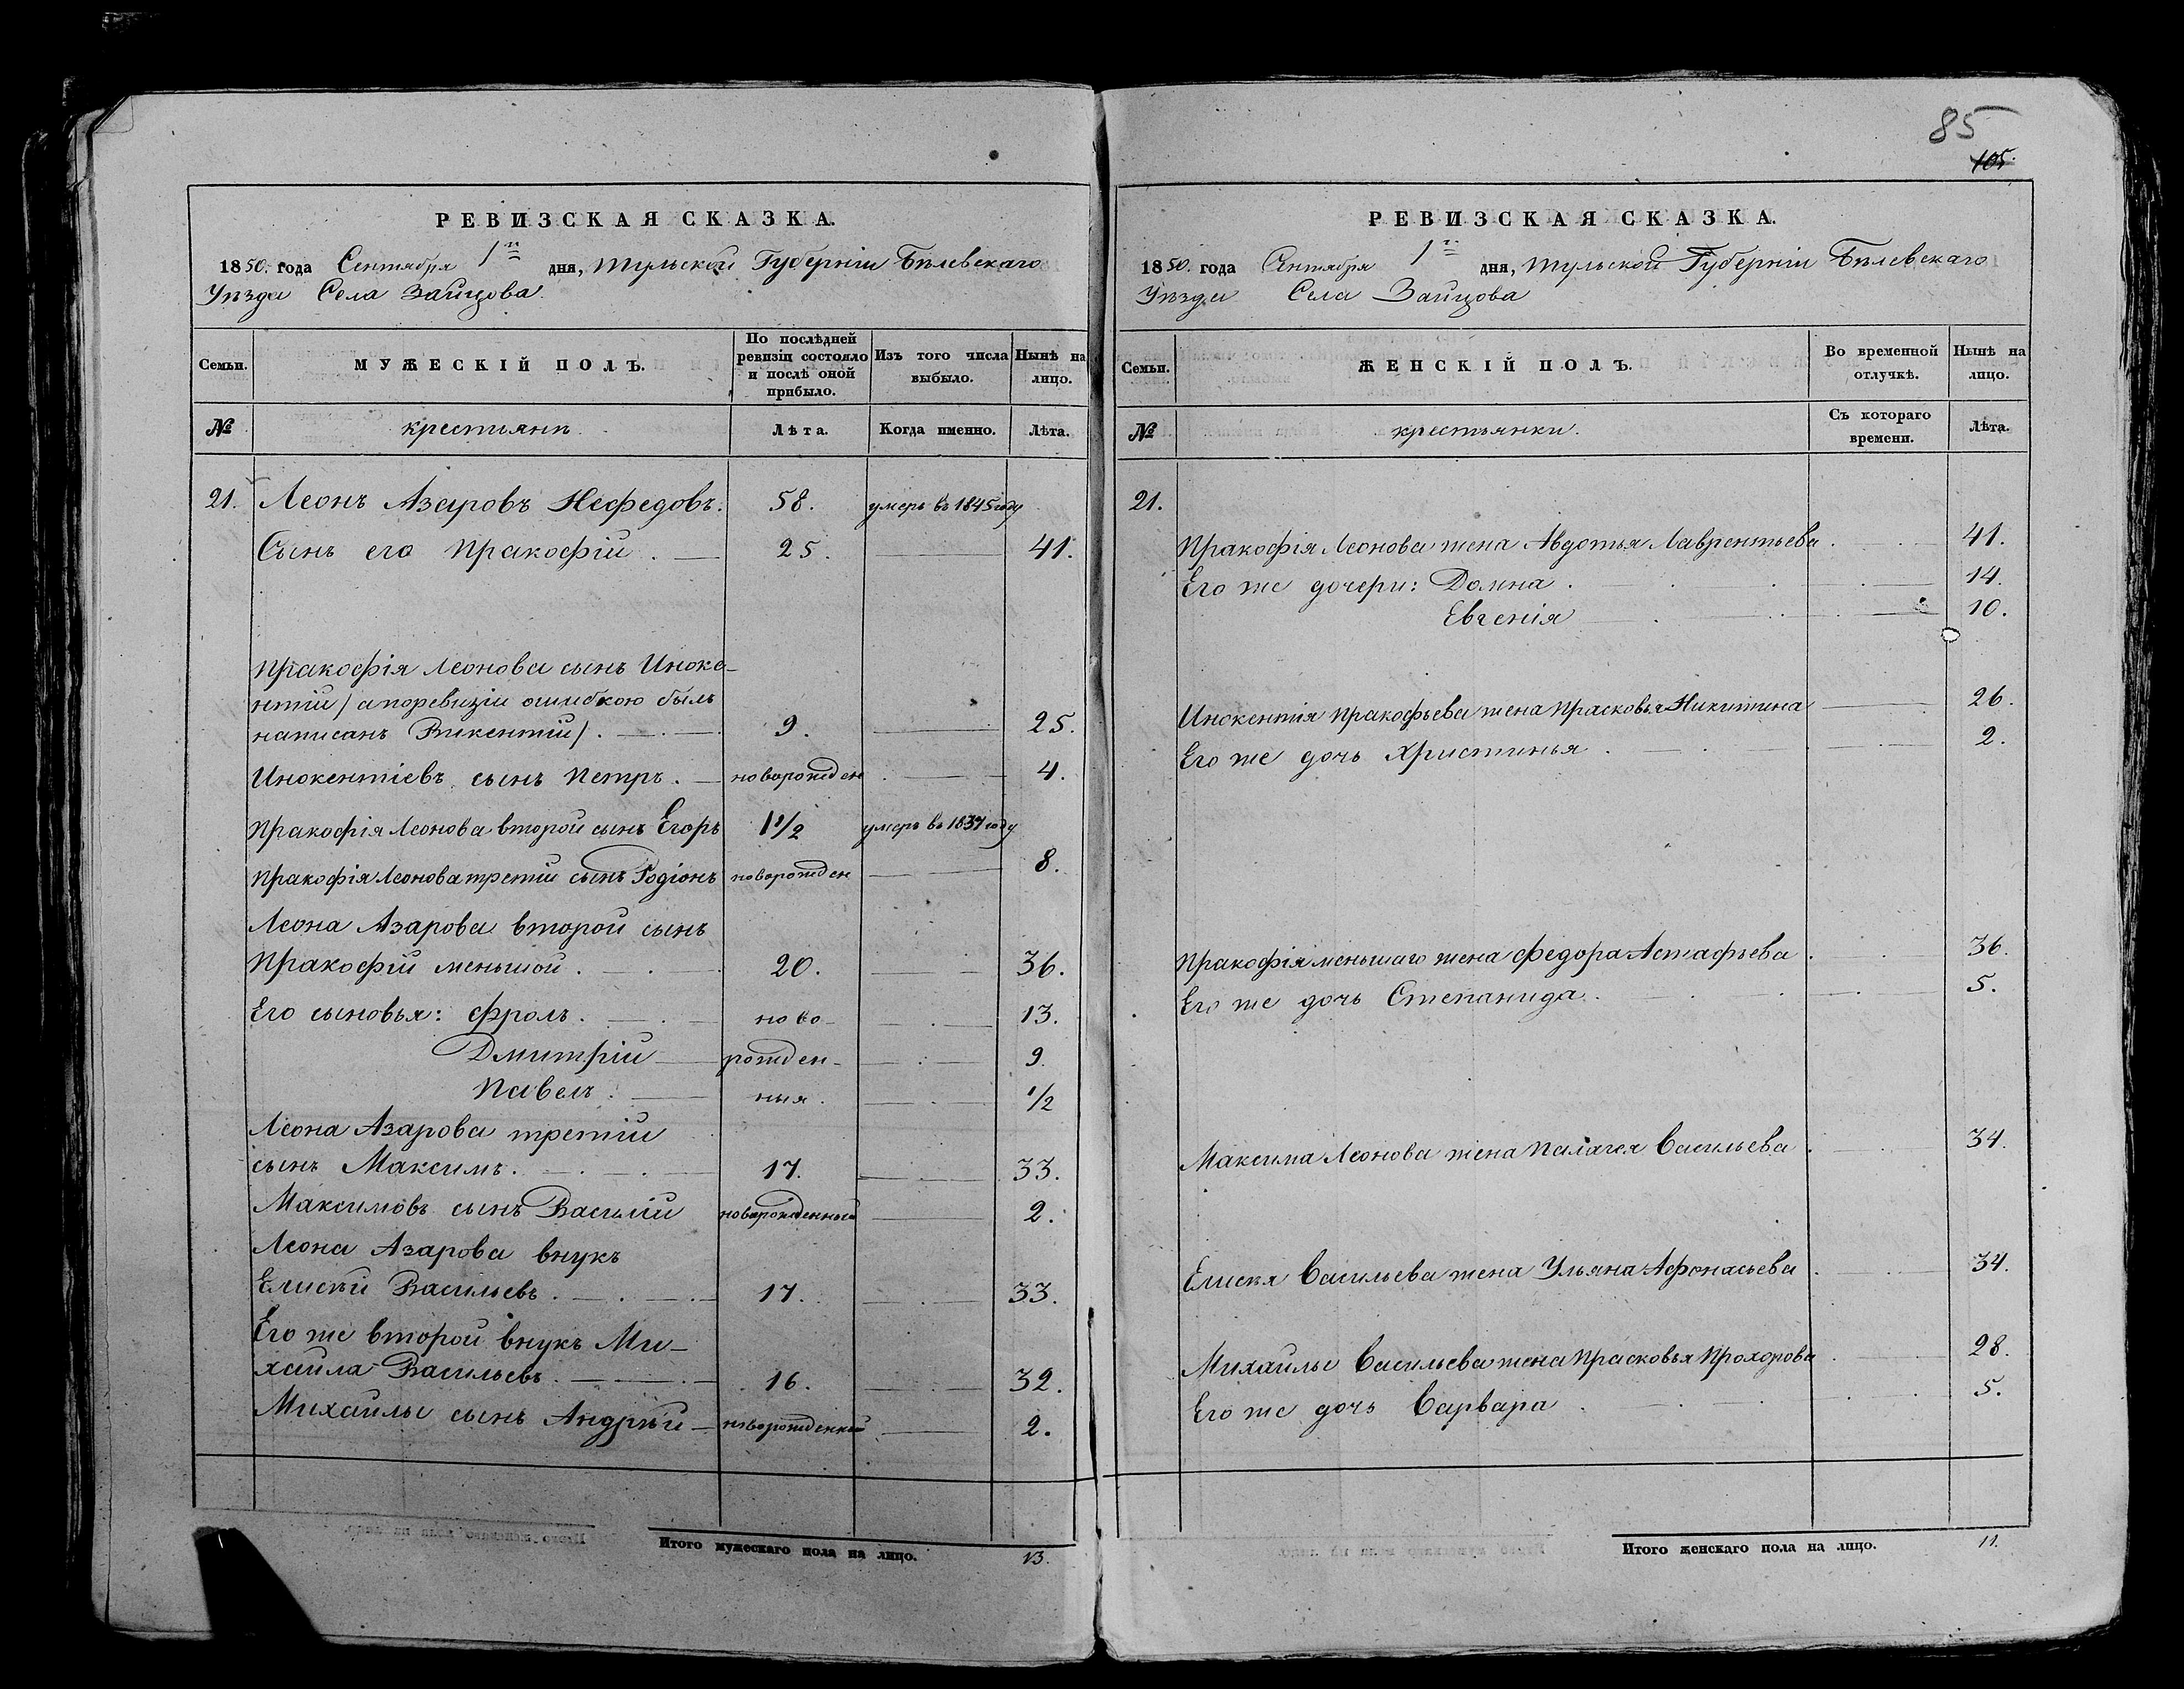 85
105.
РЕВИЗСКАЯ СКАЗКА.
1850. года Сентября 1го дня, Тульской Губерніи Бѣлевскаго
Уѣзда Села Зайцова.
Семьи. МУЖЕСКІЙ ПОЛЪ. По послѣдней ревизіи состояло и послѣ оной прибыло. Изъ того числа выбыло. Нынѣ на лицо.
№ крестьянѣ. Лѣта. Когда именно. Лѣта.
21. Леонъ Азаровъ Нефедовъ. 58. умеръ въ 1845 году
Сынъ его Пракофій. 25. 41.
Пракофія Леонова сынъ Иноке-
нтій / а по ревизіи ошибкою былъ
написанъ Викентій /. 9. 25.
Инокентіевъ сынъ Петръ. новорожден 4.
Пракофія Леонова второй сынъ Егоръ 1 1/2 умеръ въ 1837 году
Пракофія Леонова третій сынъ Родіонъ новорожден 8.
Леона Азарова второй сынъ
Пракофій меньшой. 20. 36.
Его сыновья: Фролъ. ново- 13.
Дмитрій рожден- 9.
Павелъ. ныя. 1/2
Леона Азарова третій
сынъ Максимъ. 17. 33.
Максимовъ сынъ Василій новорожденный 2.
Леона Азарова внукъ
Елисѣй Васильевъ. 17. 33.
Его же второй внукъ Ми-
хайла Васильевъ. 16. 32.
Михайлы сынъ Андрѣй новорожденный 2.
Итого мужескаго пола на лицо. 13.
РЕВИЗСКАЯ СКАЗКА.
1850. года Сентября 1го дня, Тульской Губерніи Бѣлевскаго
Уѣзда Села Зайцова
Семьи. ЖЕНСКІЙ ПОЛЪ. Во временной отлучкѣ. Нынѣ на лицо.
№ крестьянки. Съ котораго времени. Лѣта.
21.
Пракофія Леонова жена Авдотья Лаврентьева. 41.
Его же дочери: Домна. 14.
Евгенія 10.
Инокентія Пракофьева жена Прасковья Никитина 26.
Его же дочь Христинья. 2.
Пракофія меньшаго жена Федора Астафьева. 36.
Его же дочь Степанида. 5.
Максима Леонова жена Палагея Васильева. 34.
Елисѣя Васильева жена Ульяна Афонасьева. 34.
Михайлы Васильева жена Прасковья Прохорова. 28.
Его же дочь Варвара. 5.
Итого женскаго пола на лицо. 11.